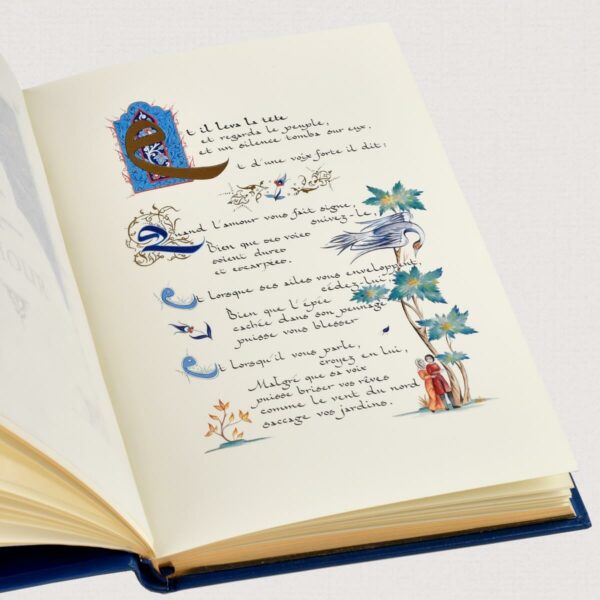 Et il leva la tête
et regarda le peuple,
et un silence tomba sur eux.
Et d'une voix forte il dit:
Quand l'amour vous fait signe,
suivez-le,
Bien que ses voies
soient dures
et escarpées.
Et lorsque ses ailes vous enveloppent,
cédez-lui.
Bien que l'épée
cachée dans son pennage
puisse vous blesser
Et lorsqu'il vous parle,
croyez en lui,
Malgré que sa voix
puisse briser vos rêves
comme le vent du nord
saccage vos jardins.